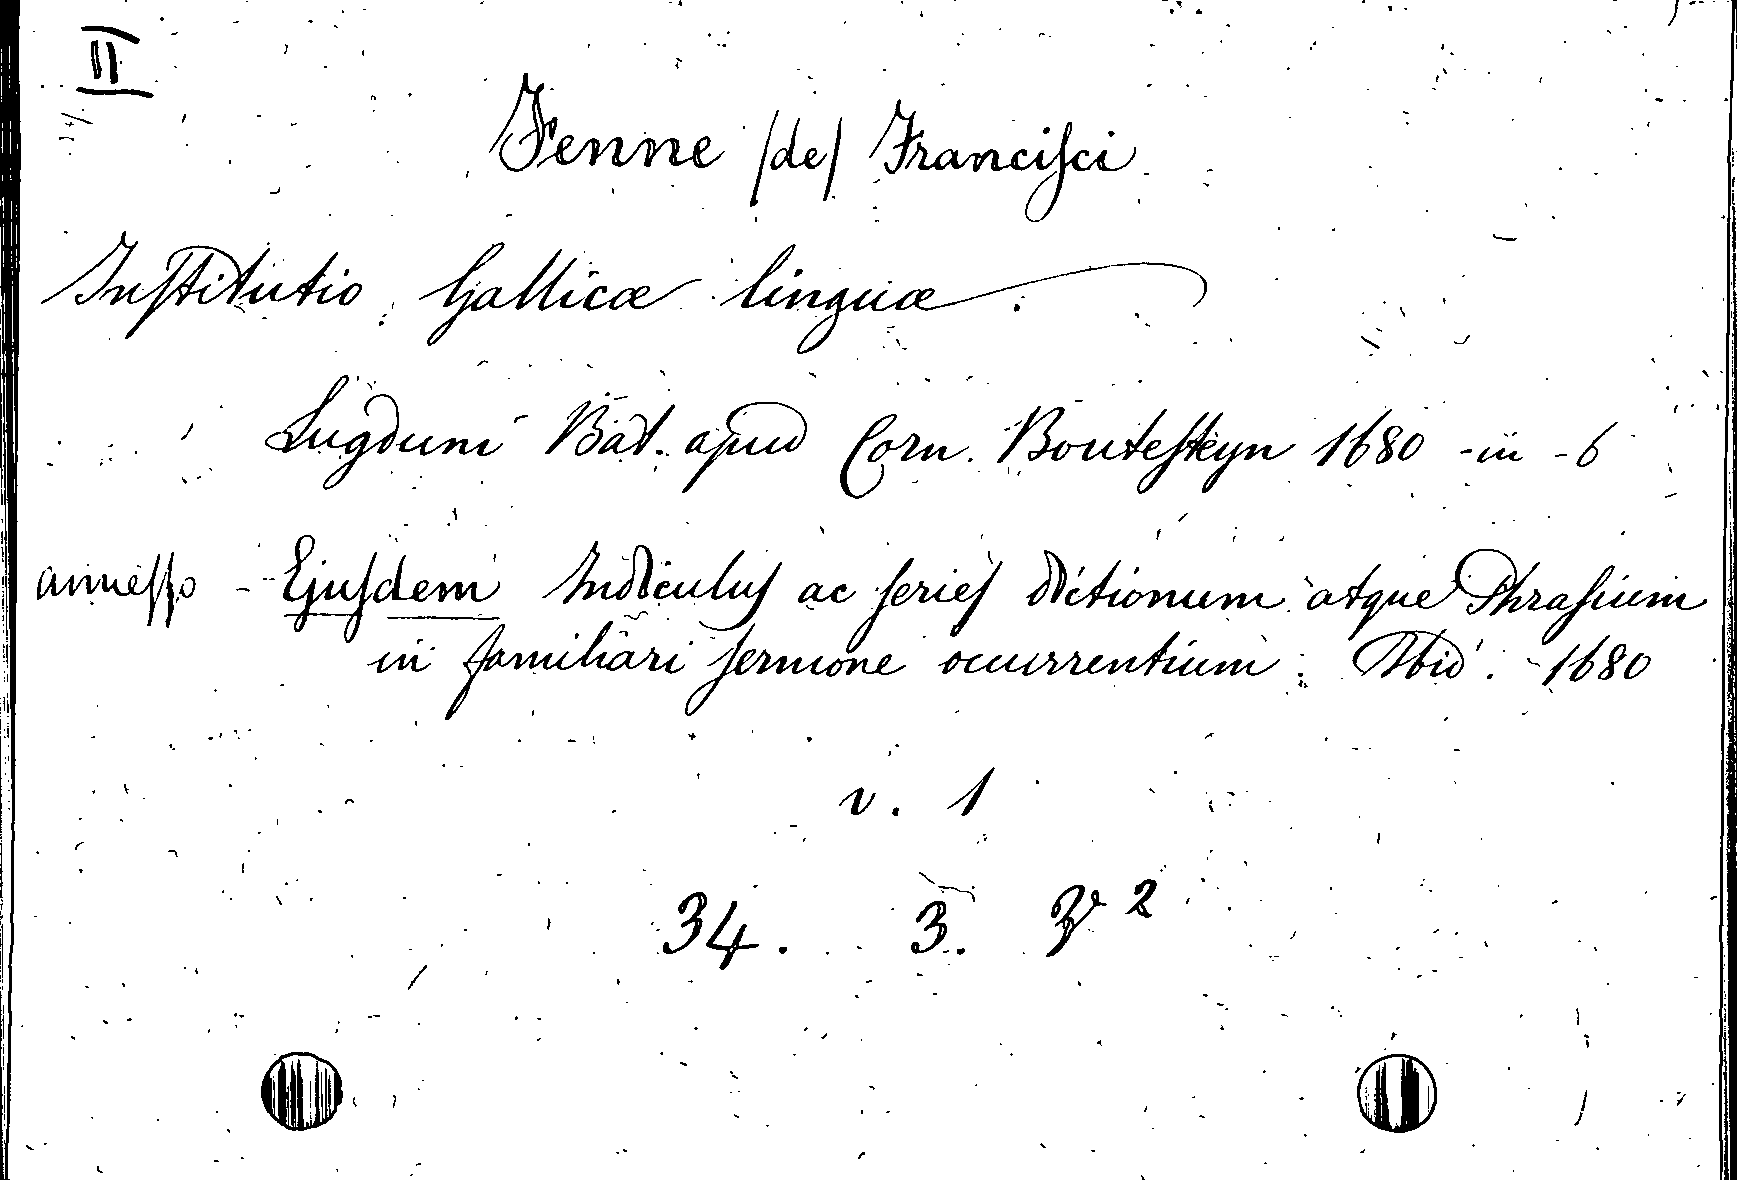 II
Fenne /de/ Francisci
Institutio Gallicæ linguæ.
Lugduni Bat. apud Corn. Boutesteyn 1680 - in - 6
annesso - Ejusdem Indiculus ac series dictionum atque Phrasium
in familiari sermone ocurrentium. Ibid. - 1680
v. 1
34. 3.